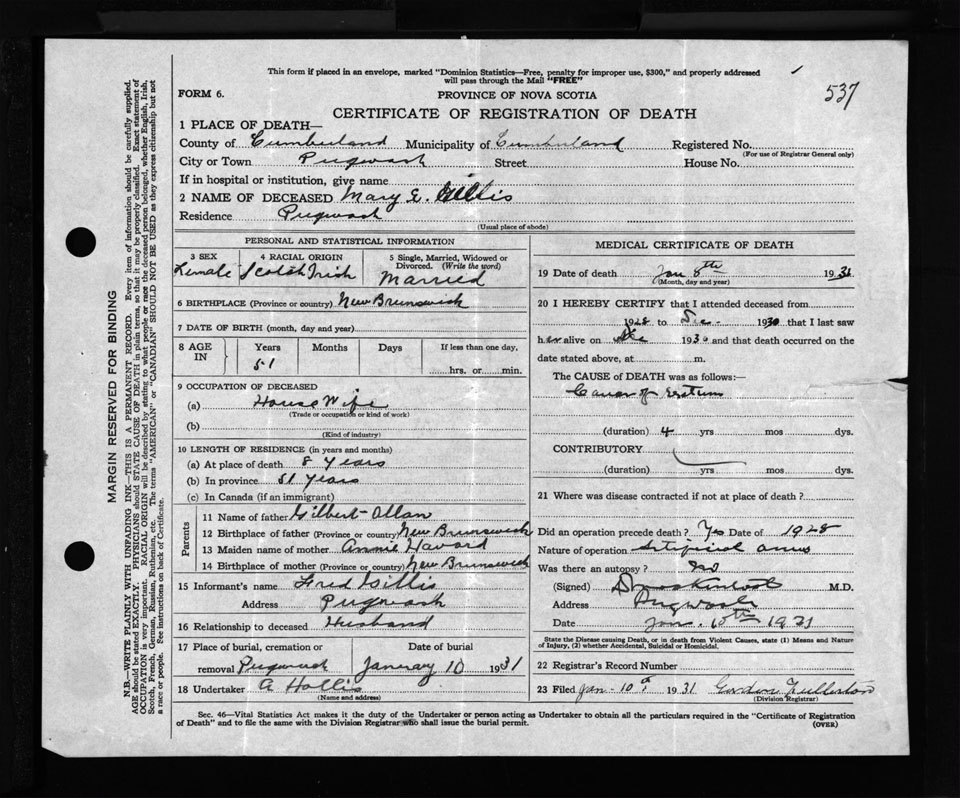 This form if placed in an envelope, marked "Dominion Statistics—Free, penalty for improper use, $300," and properly addressed
will pass through the Mail "FREE"
537
FORM 6.
PROVINCE OF NOVA SCOTIA
CERTIFICATE OF REGISTRATION OF DEATH
1 PLACE OF DEATH—
County of Cumberland Municipality of Cumberland Registered No.
(For use of Registrar General only)
City or Town Pugwash Street House No.
If in hospital or institution, give name
2 NAME OF DECEASED Mary E. Gillis
Residence Pugwash
(Usual place of abode)
PERSONAL AND STATISTICAL INFORMATION
3 SEX 4 RACIAL ORIGIN 5 Single, Married, Widowed or
Divorced. (Write the word)
Female Scotch Irish Married
6 BIRTHPLACE (Province or country) New Brunswick
7 DATE OF BIRTH (month, day and year)
8 AGE IN Years Months Days If less than one day,
51 hrs. or min.
9 OCCUPATION OF DECEASED
(a) House Wife
(Trade or occupation or kind of work)
(b)
(Kind of industry)
10 LENGTH OF RESIDENCE (in years and months)
(a) At place of death 8 years
(b) In province 51 years
(c) In Canada (if an immigrant)
Parents
11 Name of father Gilbert Allan
12 Birthplace of father (Province or country) New Brunswick
13 Maiden name of mother Annie Havard
14 Birthplace of mother (Province or country) New Brunswick
15 Informant's name Fred Gillis
Address Pugwash
16 Relationship to deceased Husband
17 Place of burial, cremation or Date of burial
removal Pugwash January 10 1931
18 Undertaker A Hollis
(Name and address)
MEDICAL CERTIFICATE OF DEATH
19 Date of death Jan 8th 1931
(Month, day and year)
20 I HEREBY CERTIFY that I attended deceased from
1928 to Dec. 1930 that I last saw
her alive on 1930 and that death occurred on the
date stated above, at m.
The CAUSE of DEATH was as follows:—
Cancer of rectum
(duration) 4 yrs mos dys.
CONTRIBUTORY
(duration) yrs mos dys.
21 Where was disease contracted if not at place of death?
Did an operation precede death? Yes Date of 1928
Nature of operation Artificial anus
Was there an autopsy? No
(Signed) M.D.
Address Pugwash
Date Jan. 10th 1931
State the Disease causing Death, or in death from Violent Causes, state (1) Means and Nature
of Injury, (2) whether Accidental, Suicidal or Homicidal.
22 Registrar's Record Number
23 Filed Jan-10th 1931 Gordon Fullerton
(Division Registrar)
Sec. 46—Vital Statistics Act makes it the duty of the Undertaker or person acting as Undertaker to obtain all the particulars required in the "Certificate of Registration
of Death" and to file the same with the Division Registrar who shall issue the burial permit.
(OVER)
MARGIN RESERVED FOR BINDING
N.B.—WRITE PLAINLY WITH UNFADING INK—THIS IS A PERMANENT RECORD. Every item of information should be carefully supplied.
AGE should be stated EXACTLY. PHYSICIANS should STATE CAUSE OF DEATH in plain terms, so that it may be properly classified. Exact statement of
OCCUPATION is very important. RACIAL ORIGIN will be described by stating to what people or race the deceased person belonged, whether English, Irish,
Scotch, French, German, Russian, Ruthenian, etc. The terms "AMERICAN" or "CANADIAN" SHOULD NOT BE USED as they express citizenship but not
a race or people. See instructions on back of Certificate.